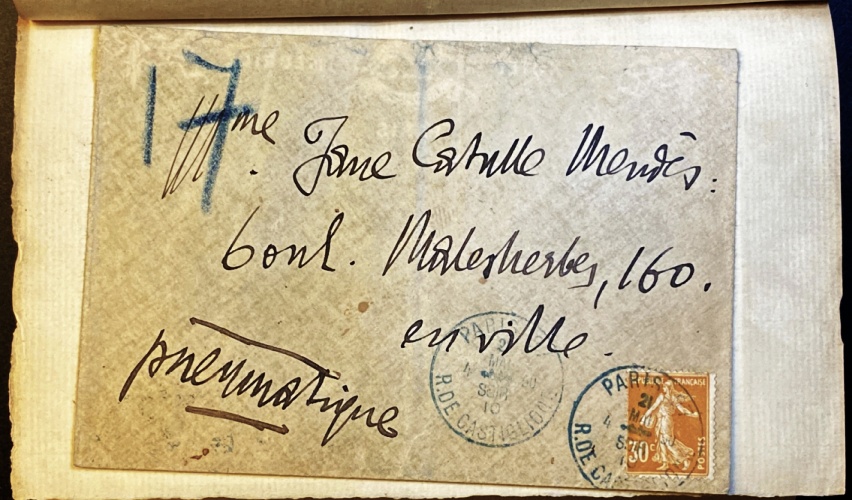 17
Mme. Jane Catulle Mendès.
boul. Malesherbes, 160.
en ville.
pneumatique
PARIS
4
10
R. DE CASTIGLIONE
PARIS
21
4
R. DE
FRANÇAISE
30c
POSTES